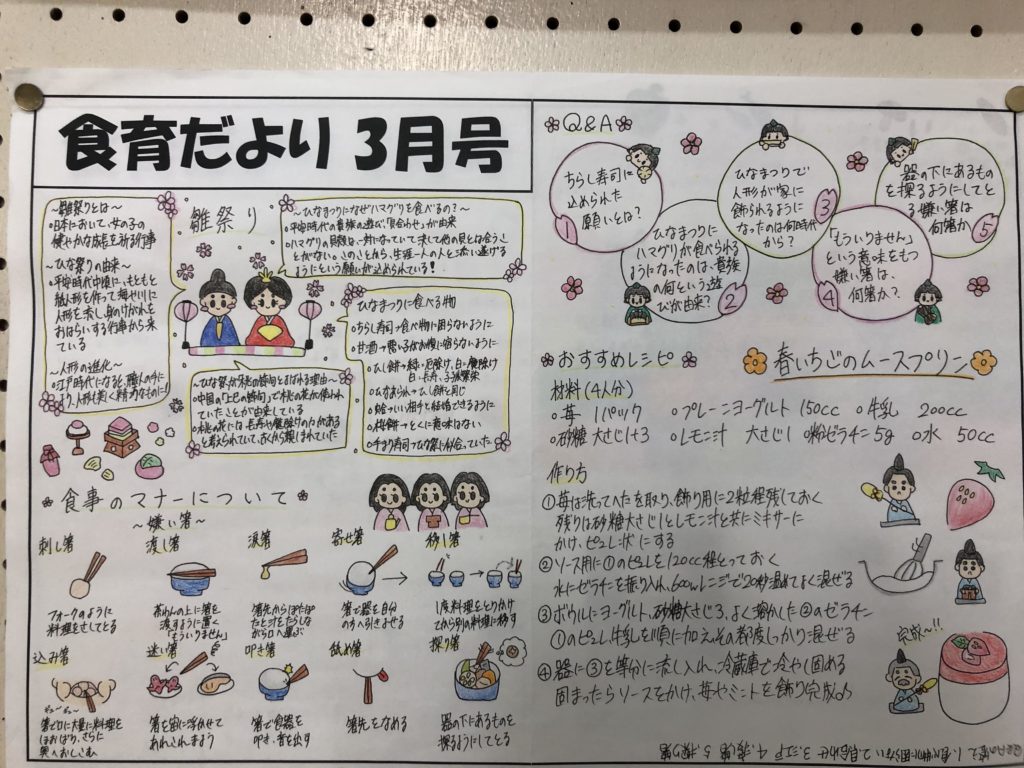 食育だより 3月号
雛祭り
～雛祭りとは～
・日本において、女の子の
健やかな成長を祈る行事
～ひな祭りの由来～
・平安時代中頃に、もともと
紙人形を作って海や川に
人形を流し、身のけがれを
おはらいする行事から来
ている
～人形の進化～
・江戸時代になると、職人の手に
より、人形も美しく精巧なものに!
～ひなまつりになぜハマグリを食べるの?～
・平安時代の貴族の遊び、「貝合わせ」が由来
・ハマグリの貝殻は、対になっていて決して他の貝とは合うこ
とがない。このことから、生涯一人の人と添い遂げる
ようにという願いが込められている!
ひなまつりに食べる物
・ちらし寿司→食べ物に困らないように
・甘酒→
・ひし餅→緑:厄除け、白:
・ひなあられ→ひし餅と同じ
・蛤→いい相手と結婚できるように
・桜餅→とくに意味はない
・手まり寿司→ひな祭りに似合っていた
～ひな祭りが桃の節句とよばれる理由～
・中国の「上巳の節句」で桃の花が使われ
ていたことが由来している
・桃の花には、長寿や魔除けの力がある
と考えられていて、古くから親しまれていた
食事のマナーについて
～嫌い箸～
刺し箸
フォークのように
料理をさしてとる
渡し箸
茶わんの上に箸を
渡すように置く
「もういりません」
涙箸
箸先からぽたぽ
たと汁をたらしな
がら口へ運ぶ
寄せ箸
箸で器を自分
の方へ引きよせる
移り箸
1度料理をとりかけ
てから別の料理に移す
込み箸
ぎゅー ぎゅー
箸で口に大量に料理を
ほおばり、さらに
奥へおしこむ
迷い箸
箸を宙に浮かせて
あれこれまよう
叩き箸
箸で食器を
叩き、音を出す
舐め箸
箸先をなめる
探り箸
器の下にあるものを
探るようにしてとる
Q&A
ちらし寿司に
込められた
願いとは?
1
ひなまつりに
ハマグリが食べられる
ようになったのは、貴族
の何という遊
びが由来?
2
ひなまつりで
人形が家に
飾られるように
なったのは何時代
から?
3
「もういりません」
という意味をもつ
嫌い箸は、
何箸か?
4
器の下にあるもの
を探るようにしてと
る嫌い箸は
何箸か
5
おすすめレシピ
春いちごのムースプリン
材料(4人分)
・苺 1パック ・プレーンヨーグルト 150cc ・牛乳 200cc
・砂糖 大さじ1+3 ・レモン汁 大さじ1 ・粉ゼラチン5g ・水 50cc
作り方
①苺は洗ってへたを取り、飾り用に2粒程残しておく
残りは砂糖大さじ1とレモン汁と共にミキサーに
かけ、ピュレ状にする
②ソース用に①のピュレを120cc程とっておく
水にゼラチンを振り入れ、600wレンジで20秒温めてよく混ぜる
③ボウルにヨーグルト、砂糖大さじ3、よく溶かした②のゼラチン
①のピュレ、牛乳を順に加え、その都度しっかり混ぜる
④器に③を等分に流し入れ、冷蔵庫で冷やし固める
固まったらソースをかけ、苺やミントを飾り完成♪
完成～!!